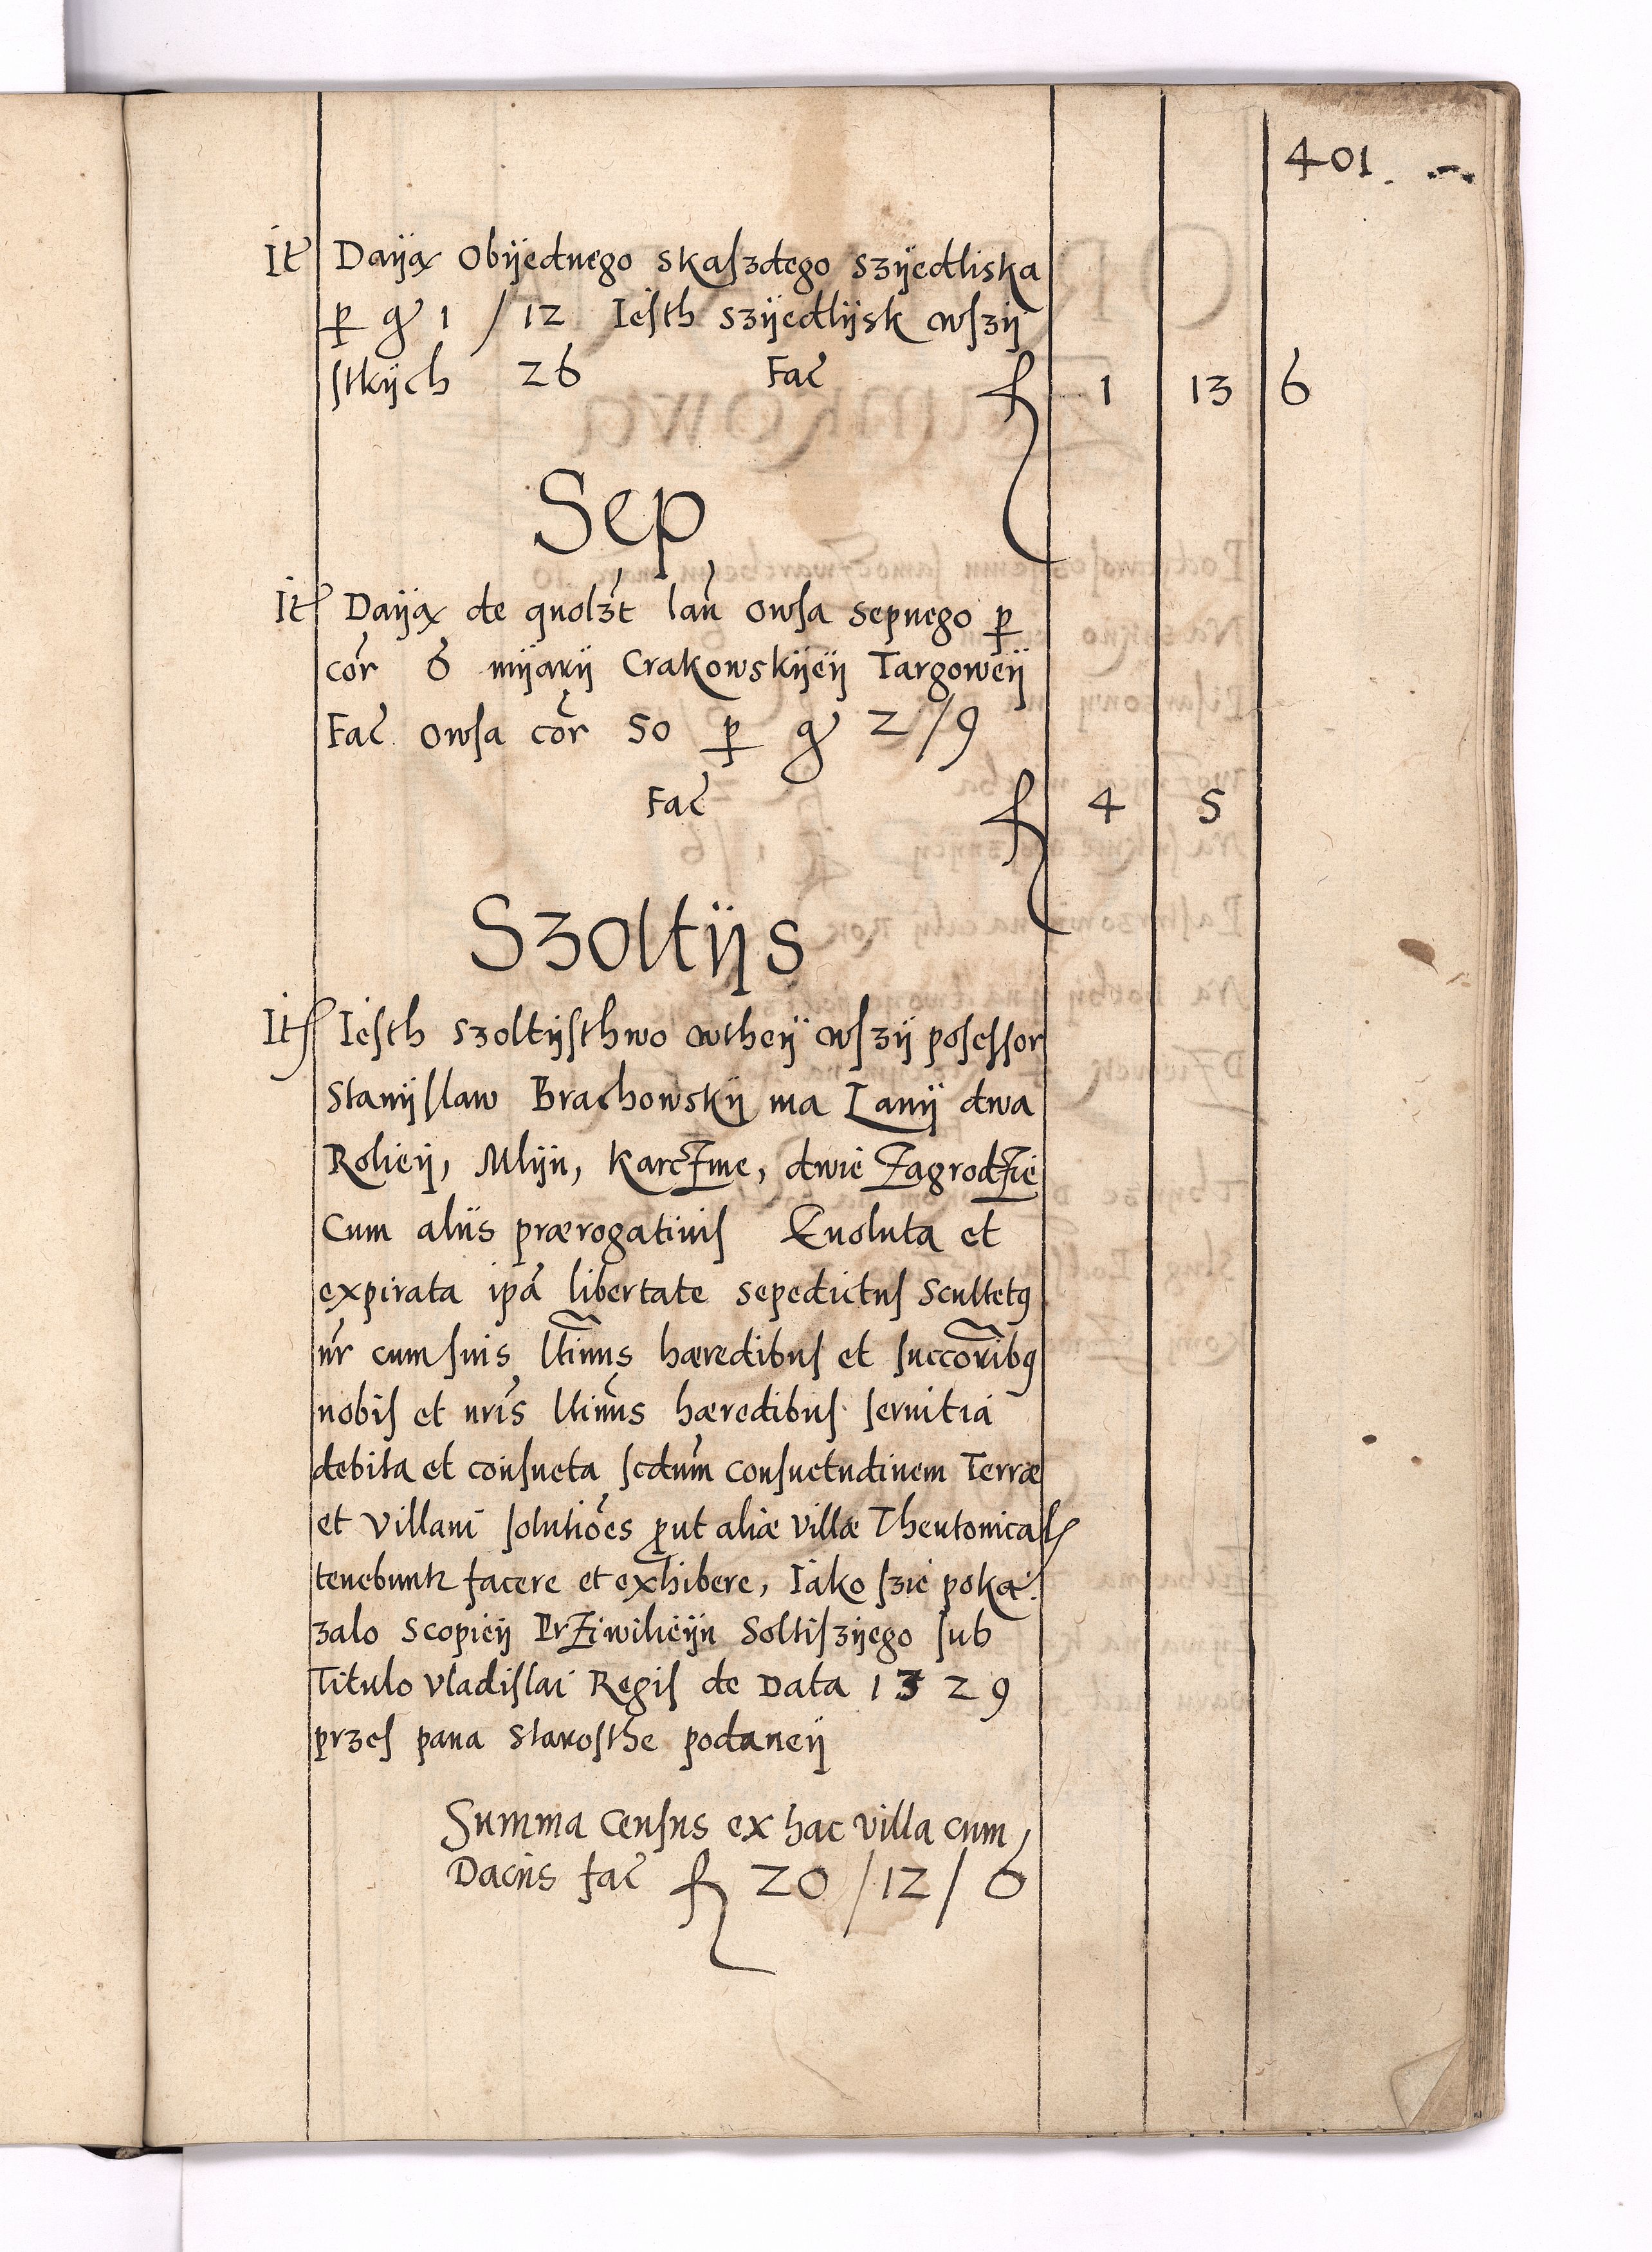 401.
It Dayą Obyednego skaſzdego szyedliska
ꝑ gͬ 1 / 12 Ieſth szyedlysk wſzy
ſtkych 26 Fać f 1 13 6
Sep
It Dayą de quolzt́ lań owſa sepnego ꝑ
coŕ 6 myary Crakowskyey Targowey
Fać owſa coŕ 50 ꝑ gͬ 2/9
Fać f 4 5
Szoltys
It Ieſth szoltyſthwo wthey wſzy poſeſſor
Stanyſlaw Brachowsky ma Lany dwa
Roliey, Mlyn, karcZme, dwie ZagrodZie
Cum aliis prærogatiuiſ Euoluta et
expirata ipã libertate sepedictuſ Scultetꝯ
nŕ cum ſuis lt̃imus hæredibuſ et ſuccor̃ibꝯ
nobiſ et nriś ltim̃us hæredibuſ ſeruitia
debita et conſueta ſcdum̃ conſuetudinem Terræ
et Villani ſolutiões ꝓut aliæ villæ Theutonicaſ
tenebuntr facere et exhibere, Iako ſzie poka:
zalo Scopiey PrZiwilieyu Soltiſzyego ſub
Titulo Vladiſlai Regiſ de Data 1329
przeſ pana Staroſthe podaney
Summa cenſus ex hac villa cum
Daciis fać f 20/12/6